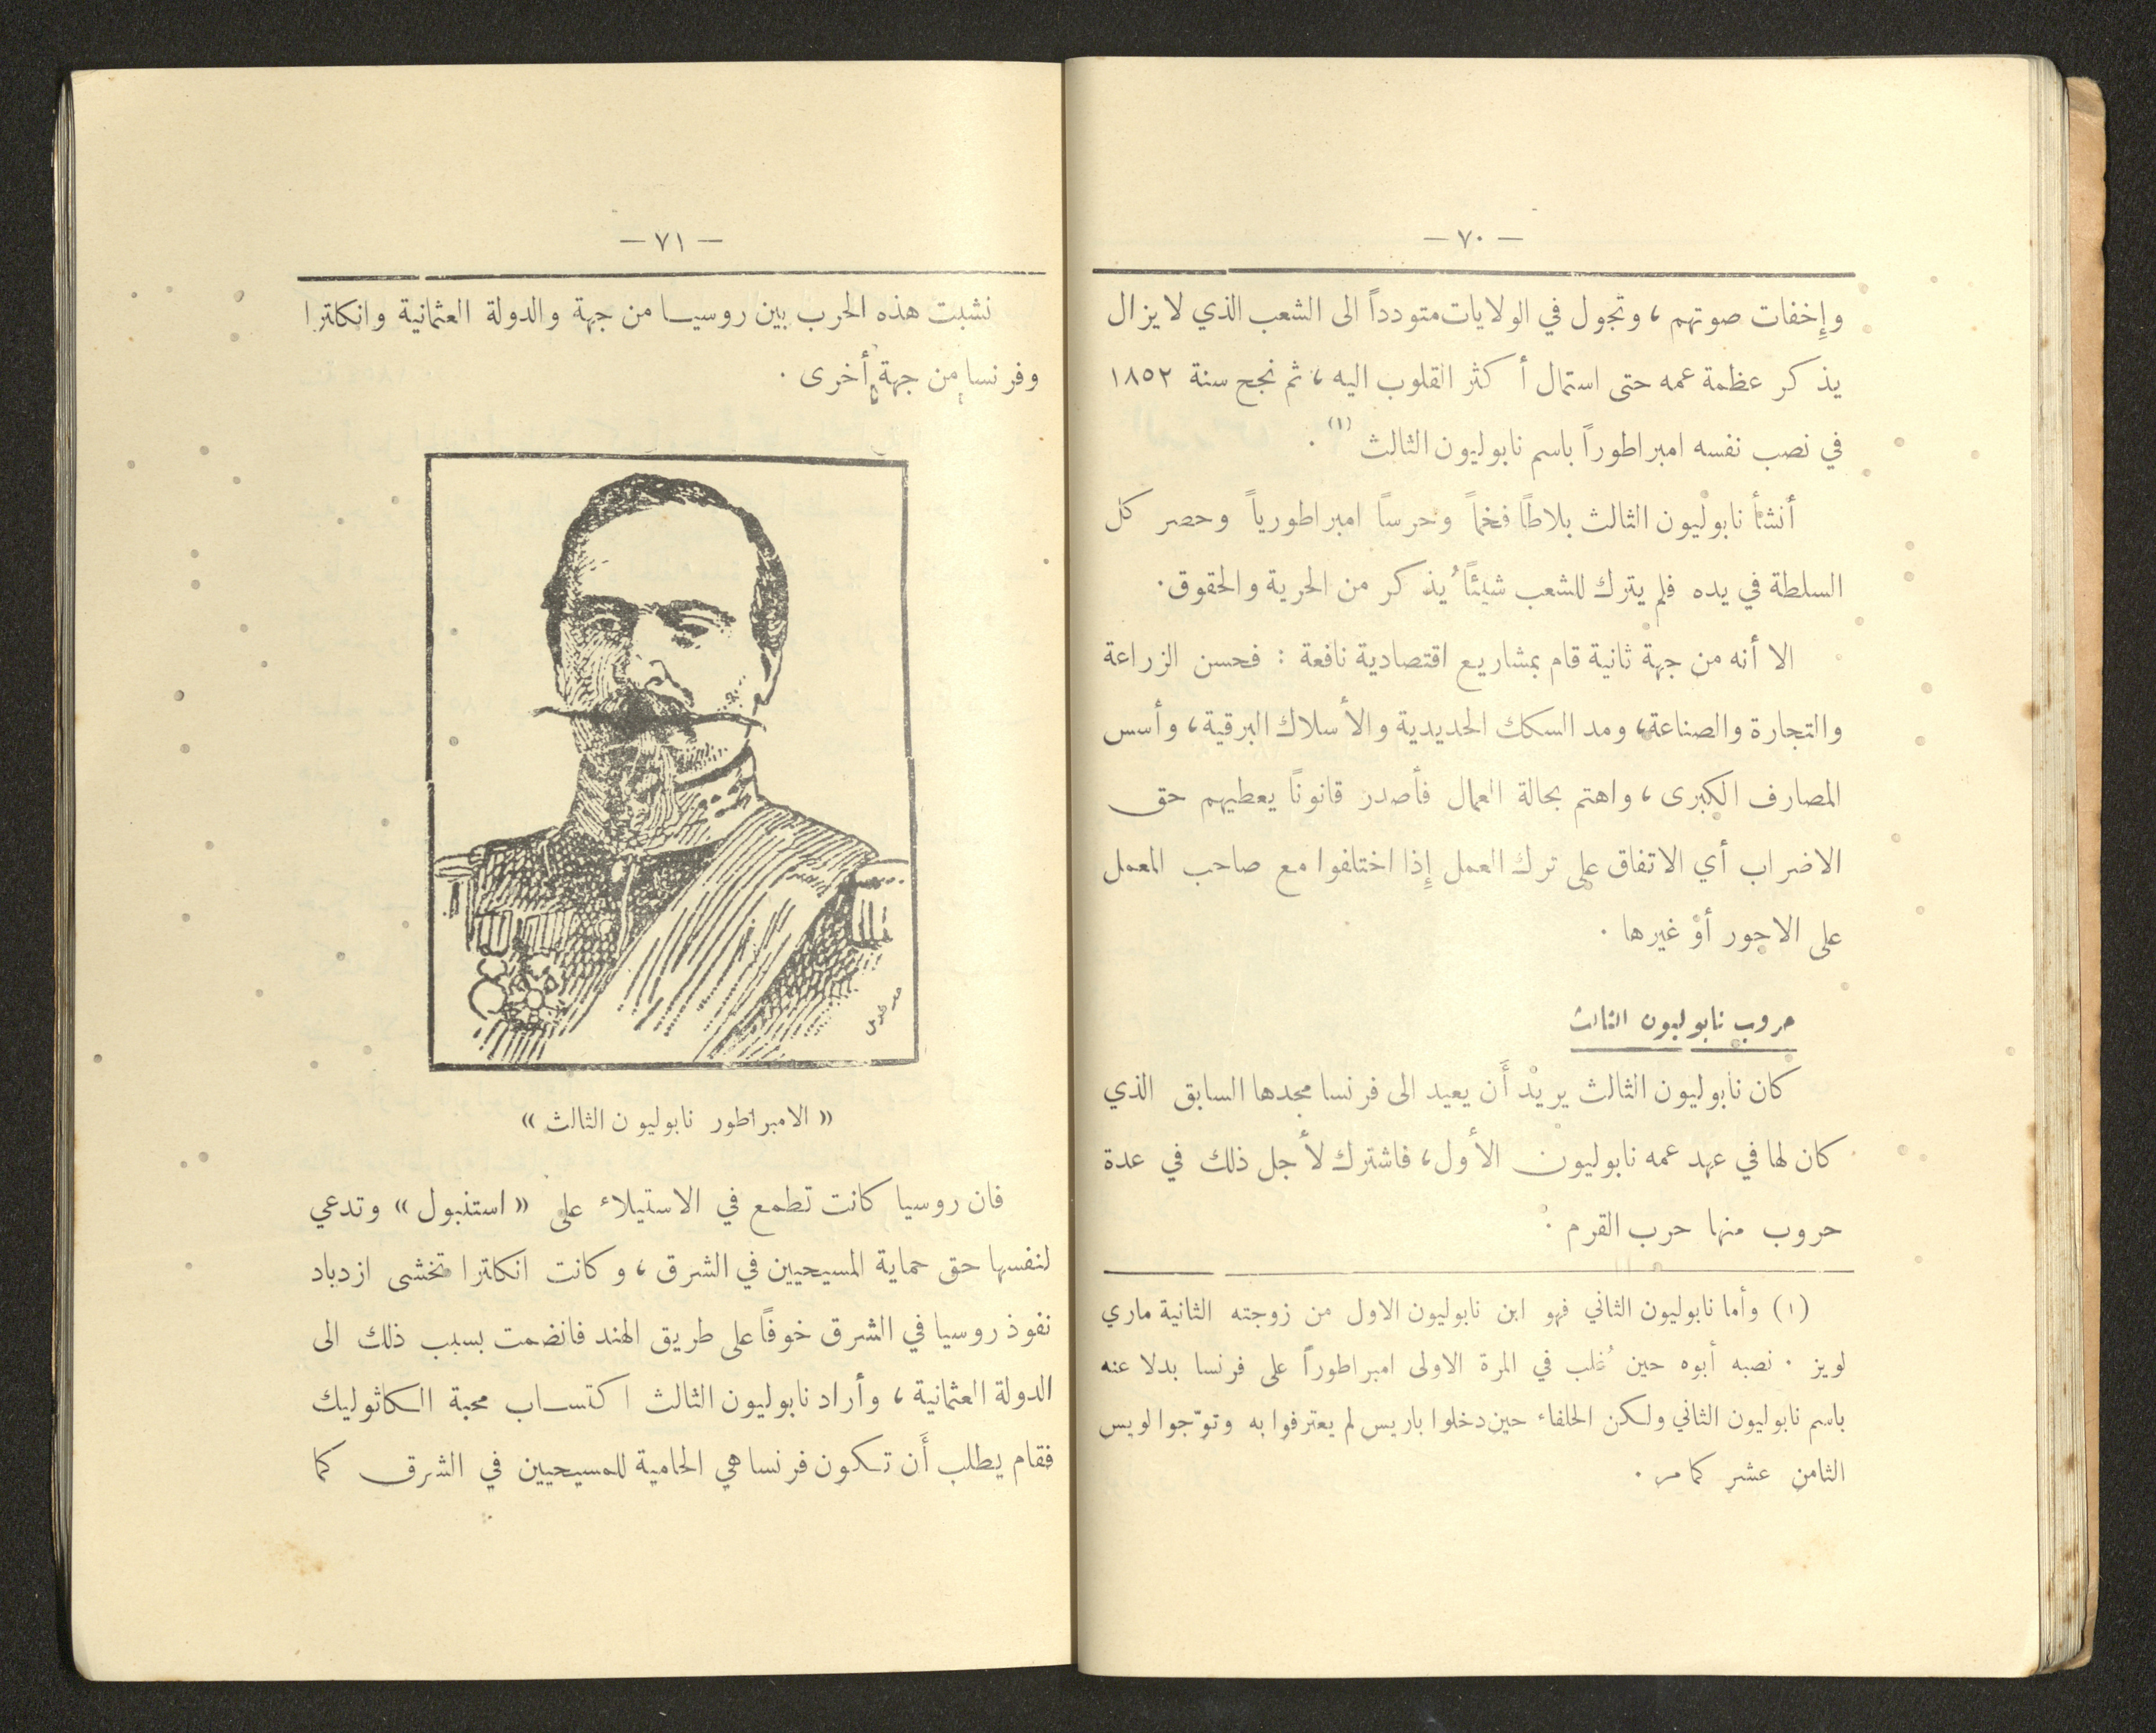 — ٧٠ —
وإِخفات صوتهم ، وتجول في الولايات متودداً الى الشعب الذي لا يزال
يذكر عظمة عمه حتى استمال أكثر القلوب اليه ، ثم نجح سنة ١٨٥٢
في نصب نفسه امبراطوراً باسم نابوليون الثالث (١) .
أنشأ نابوليون الثالث بلاطاً فخماً وحرساً امبراطورياً وحصر كل
السلطة في يده فلم يترك للشعب شيئاً يُذكر من الحرية والحقوق .
الا أنه من جهة ثانية قام بمشاريع اقتصادية نافعة : فحسن الزراعة
والتجارة والصناعة ، ومد السكك الحديدية والأسلاك البرقية ، وأسس
المصارف الكبرى ، واهتم بحالة العمال فأصدر قانوناً يعطيهم حق
الاضراب أي الاتفاق على ترك العمل إِذا اختلفوا مع صاحب المعمل
على الاجور أو غيرها .
حروب نابوليون الثالث
كان نابوليون الثالث يريد أَن يعيد الى فرنسا مجدها السابق الذي
كان لها في عهد عمه نابوليون الأول ، فاشترك لأجل ذلك في عدة
حروب منها حرب القرم .
(١) وأما نابوليون الثاني فهو ابن نابوليون الاول من زوجته الثانية ماري
لويز . نصبه أبوه حين غُلب في المرة الاولى امبراطوراً على فرنسا بدلا عنه
باسم نابوليون الثاني ولكن الحلفاء حين دخلوا باريس لم يعترفوا به وتوّجوا لويس
الثامن عشر كما مر .
— ٧١ —
نشبت هذه الحرب بين روسيا من جهة والدولة العثمانية وانكلترا
وفرنسا من جهة أخرى .
« الامبراطور نابوليون الثالث »
فان روسيا كانت تطمع في الاستيلاء على « استنبول » وتدعي
لنفسها حق حماية المسيحيين في الشرق ، وكانت انكلترا تخشى ازدياد
نفوذ روسيا في الشرق خوفاً على طريق الهند فانضمت بسبب ذلك الى
الدولة العثمانية ، وأراد نابوليون الثالث اكتساب محبة الكاثوليك
فقام يطلب أَن تكون فرنسا هي الحامية للمسيحيين في الشرق كما